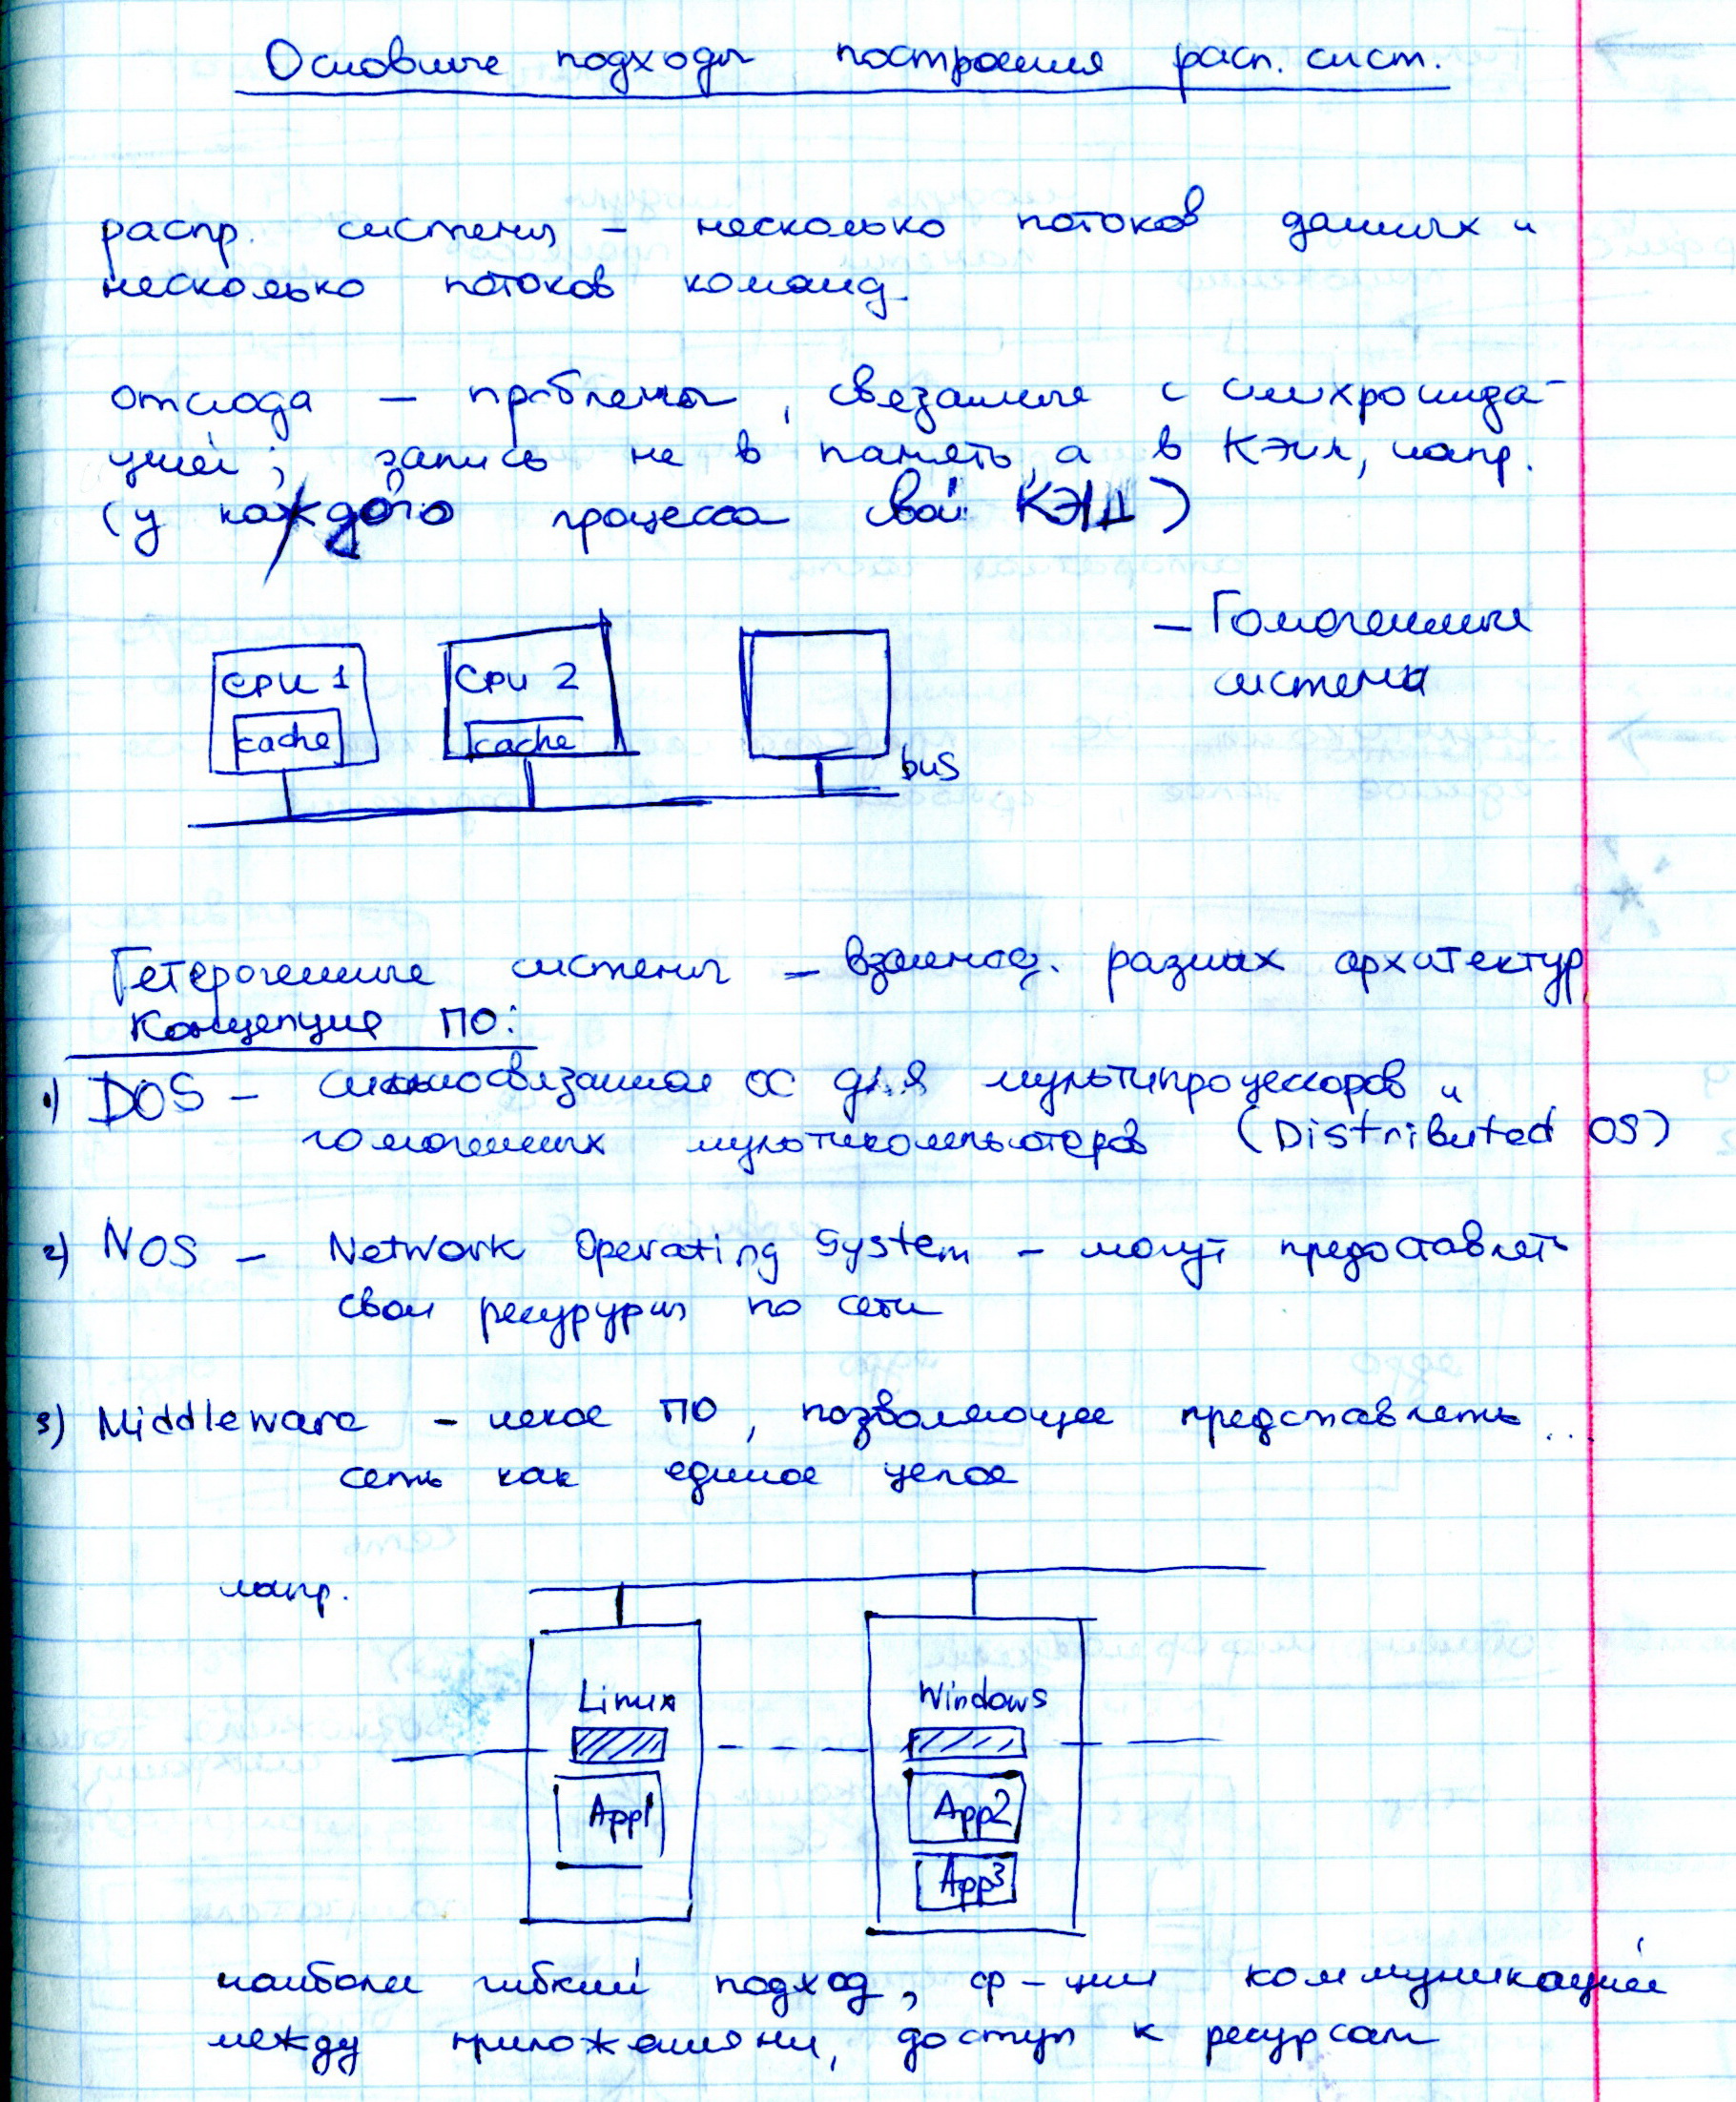 Основные подходы построения расп. сист.
распр. системы – несколько потоков данных и
несколько потоков команд
отсюда – проблемы, связанные с синхрониза-
цией; запись не в память, а в кэш, напр.
(у каждого процесса свой КЭШ)
CPU 1
cache
CPU 2
cache
bus
– Гомогенные
система
Гетерогенные системы – взаимод. разных архитектур
Концепция ПО:
1) DOS – сильносвязанная ОС для мультипроцессоров и
гомогенных мультикомпьютеров (Distributed OS)
2) NOS – Network Operating System – могут предоставлять
свои ресурурсы по сети
3) Middleware – некое ПО, позволяющее представлять...
сеть как единое целое
напр.
Linux
App1
Windows
App2
App3
наиболее гибкий подход, ф-ции коммуникацией
между приложениями, доступ к ресурсам